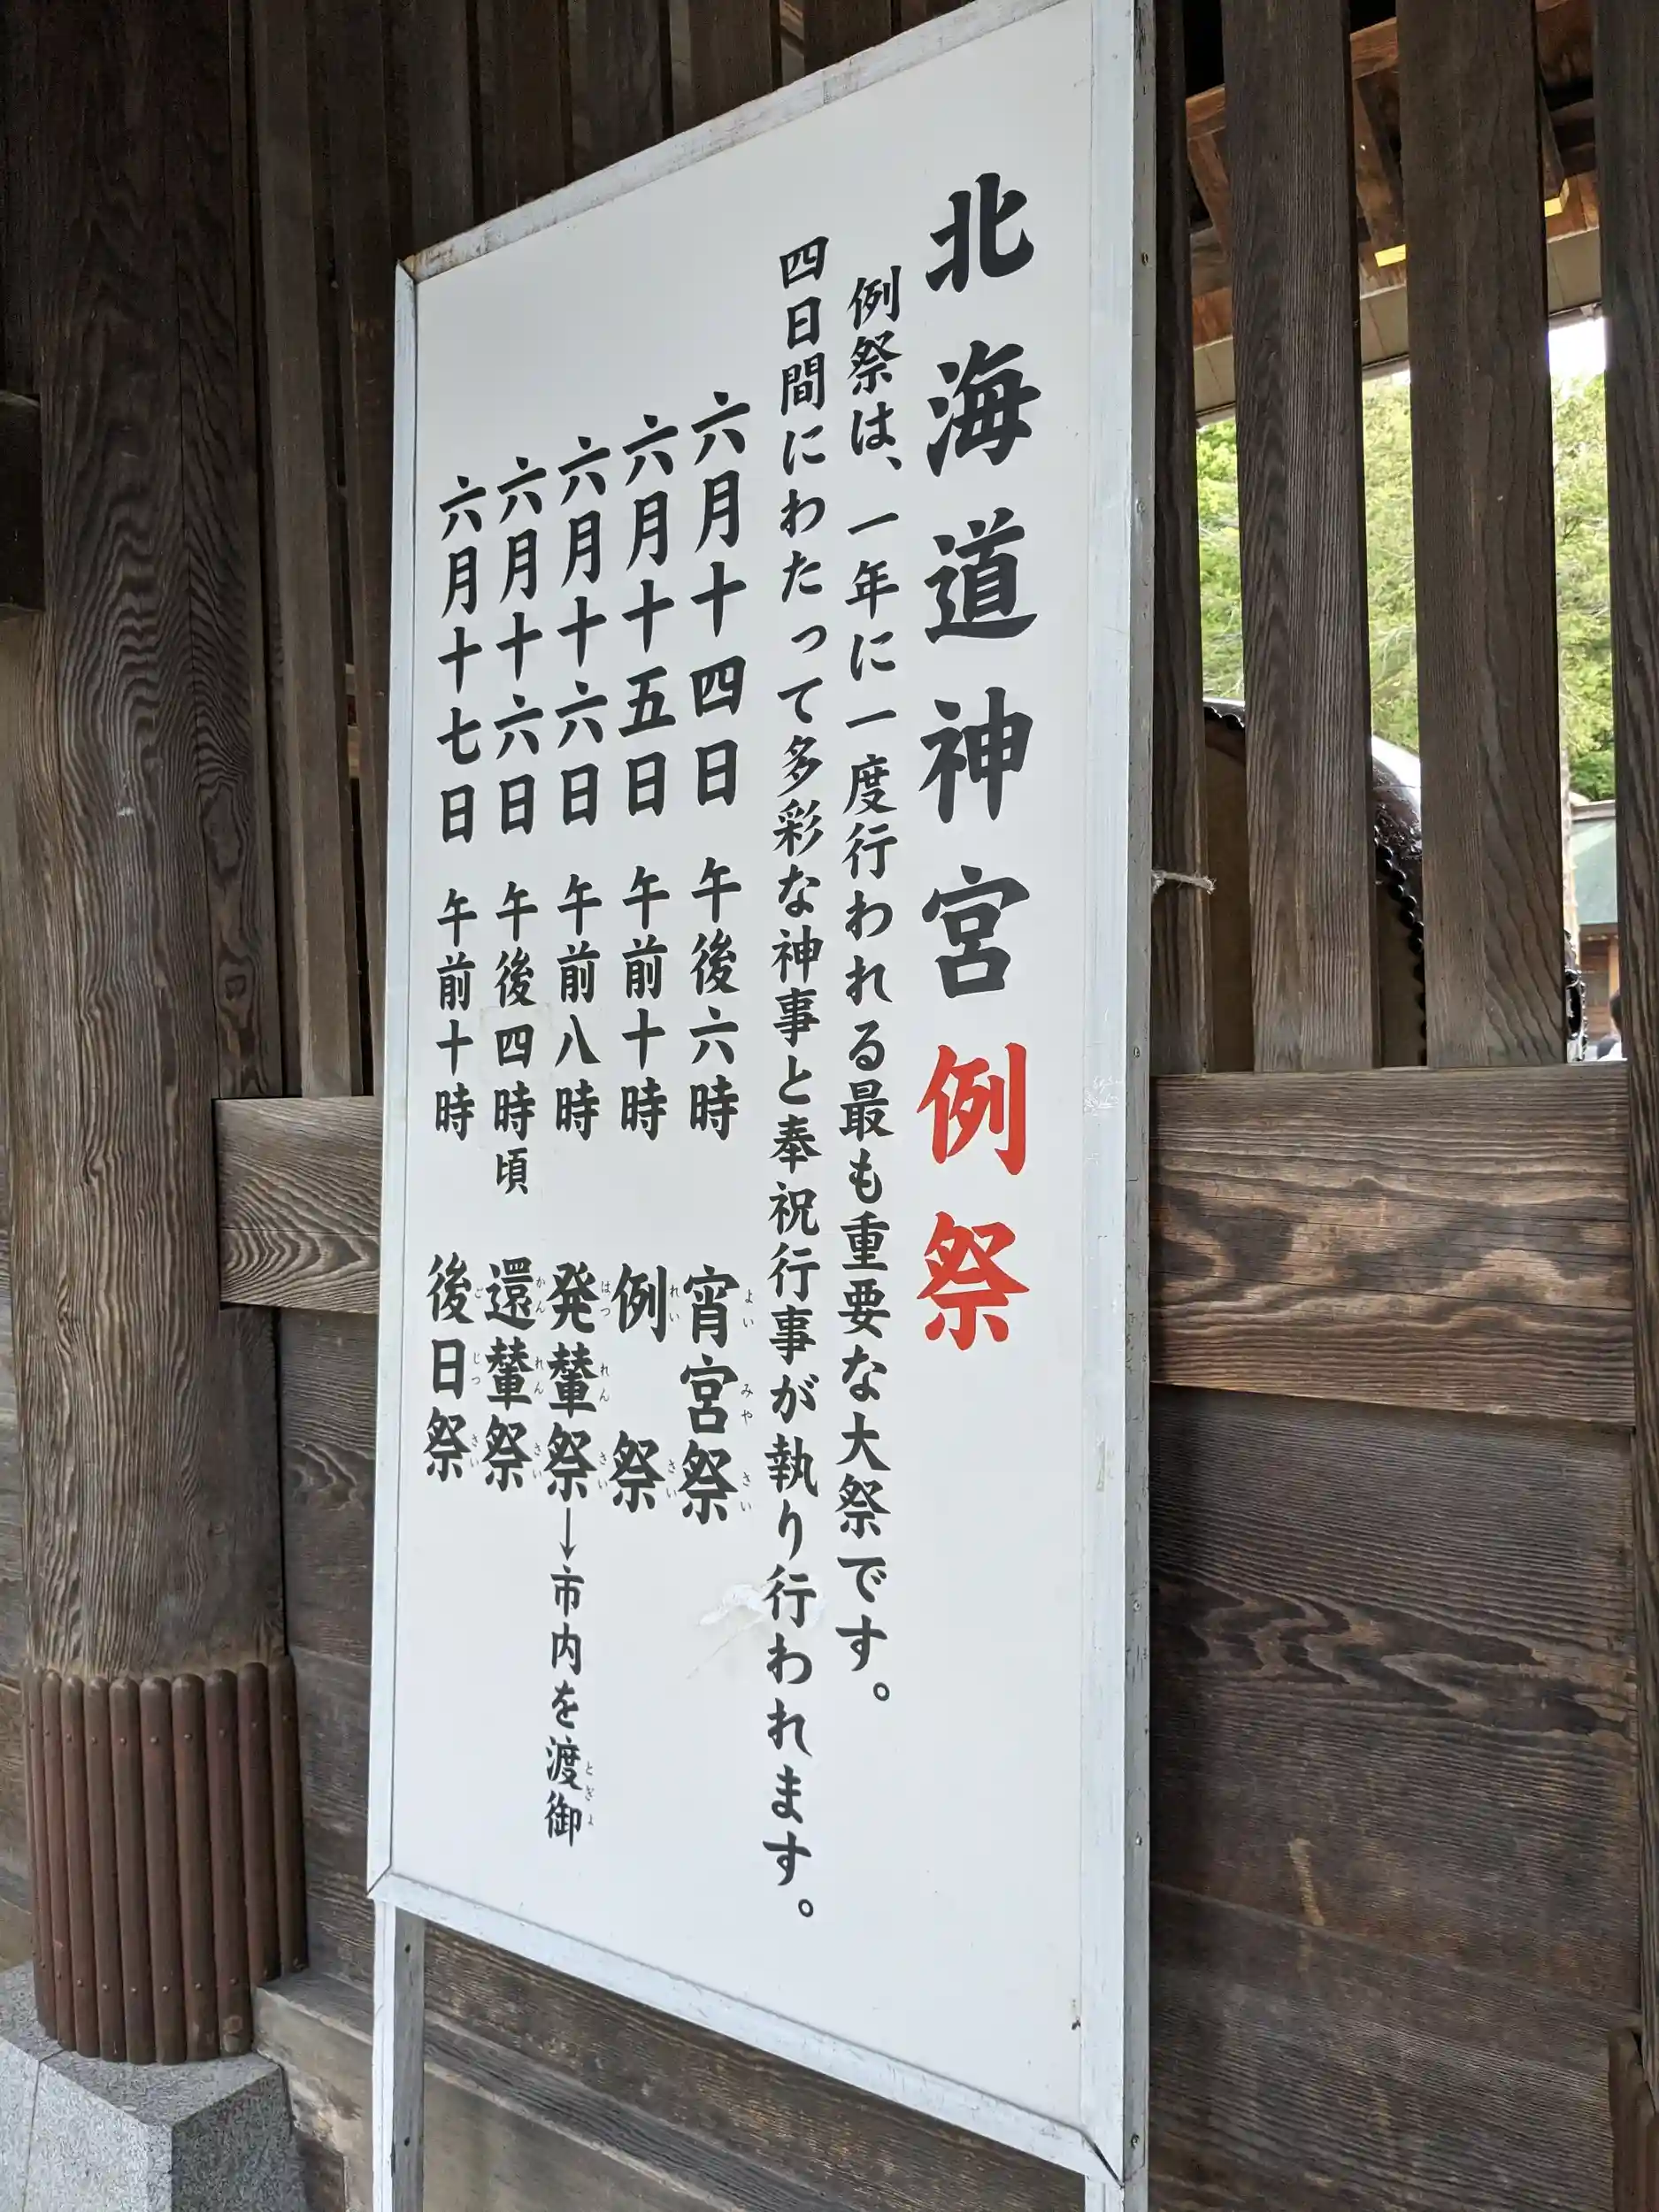 北海道神宮例祭
例祭は、一年に一度行われる最も重要な大祭です。
四日間にわたって多彩な神事と奉祝行事が執り行われます。
六月十四日 午後六時 宵宮祭
よいみやさい
六月十五日 午前十時 例祭
れいさい
六月十六日 午前八時 発輦祭→市内を渡御
はつれんさい とぎょ
六月十六日 午後四時頃 還輦祭
かんれんさい
六月十七日 午前十時 後日祭
ごじつさい